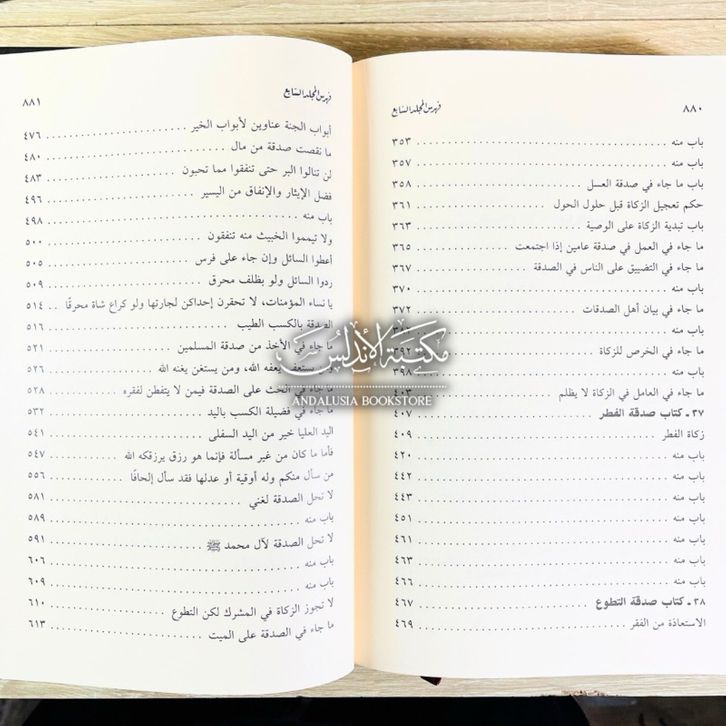 ٨٨٠ فهرس المجلد السابع
باب منه ٣٥٣
باب منه ٣٥٧
باب ما جاء في صدقة العسل ٣٥٨
حكم تعجيل الزكاة قبل حلول الحول ٣٦١
باب تبدية الزكاة على الوصية ٣٦٣
ما جاء في العمل في صدقة عامين إذا اجتمعت ٣٦٥
ما جاء في التضييق على الناس في الصدقة ٣٦٧
باب منه ٣٧٠
ما جاء في بيان أهل الصدقات ٣٧٢
باب منه
ما جاء في الخرص للزكاة ٣٩٢
باب منه ٣٩٨
ما جاء في العامل في الزكاة لا يظلم ٤٠٣
٣٧ ـ كتاب صدقة الفطر ٤٠٧
زكاة الفطر ٤٠٩
باب منه ٤٢٠
باب منه ٤٤٢
باب منه ٤٤٣
باب منه ٤٥١
باب منه ٤٦١
باب منه ٤٦٣
باب منه ٤٦٦
٣٨ ـ كتاب صدقة التطوع ٤٦٧
الاستعاذة من الفقر ٤٦٩
فهرس المجلد السابع ٨٨١
أبواب الجنة عناوين لأبواب الخير ٤٧٦
ما نقصت صدقة من مال ٤٨٠
لن تنالوا البر حتى تنفقوا مما تحبون ٤٨٣
فضل الإيثار والإنفاق من اليسير ٤٩٦
باب منه ٤٩٨
ولا تيمموا الخبيث منه تنفقون ٥٠٠
أعطوا السائل وإن جاء على فرس ٥٠٥
ردوا السائل ولو بظلف محرق ٥٠٩
يا نساء المؤمنات، لا تحقرن إحداكن لجارتها ولو كراع شاة محرقًا ٥١٤
الصدقة بالكسب الطيب ٥١٦
ما جاء في الأخذ من صدقة المسلمين ٥٢١
ومن يستعفف يعفه الله، ومن يستغن يغنه الله
ما جاء في الحث على الصدقة فيمن لا يتفطن لفقره ٥٢٨
ما جاء في فضيلة الكسب باليد ٥٣٢
اليد العليا خير من اليد السفلى ٥٤١
فأما ما كان من غير مسألة فإنما هو رزق يرزقكه الله ٥٤٧
من سأل منكم وله أوقية أو عدلها فقد سأل إلحافًا ٥٥٦
لا تحل الصدقة لغني ٥٨١
باب منه ٥٨٩
لا تحل الصدقة لآل محمد ﷺ ٥٩١
باب منه ٦٠٦
باب منه ٦٠٩
لا تجوز الزكاة في المشرك لكن التطوع ٦١٠
ما جاء في الصدقة على الميت ٦١٣
مكتبة الأندلس
ANDALUSIA BOOKSTORE